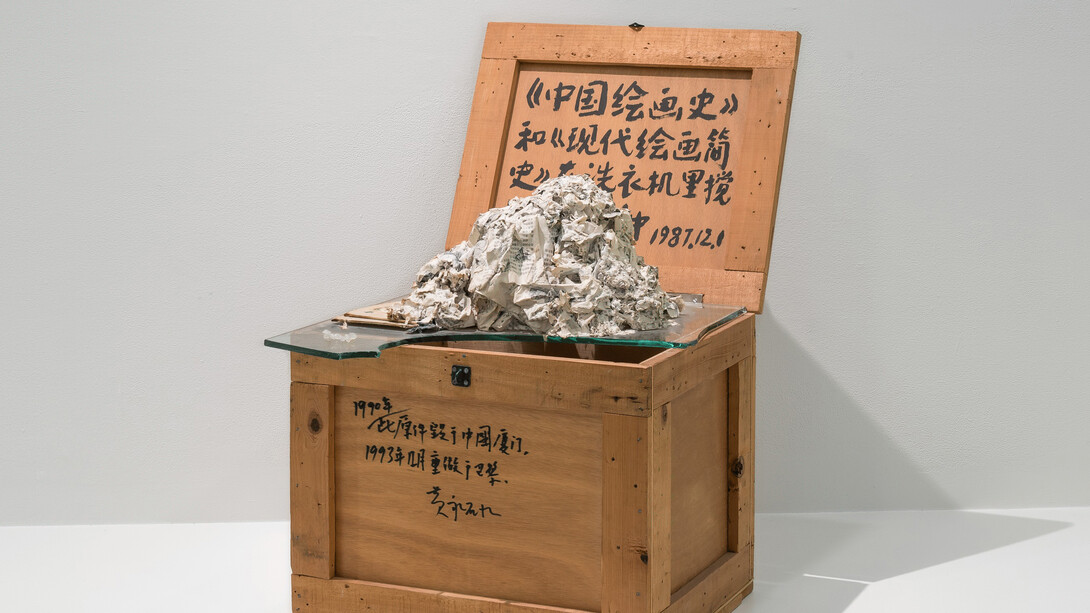 《中国绘画史》
和《现代绘画简
史》在洗衣机里搅
钟 1987.12.1
1990年
此原件毁于中国厦门,
1993年月重做于巴黎.
黄永砯